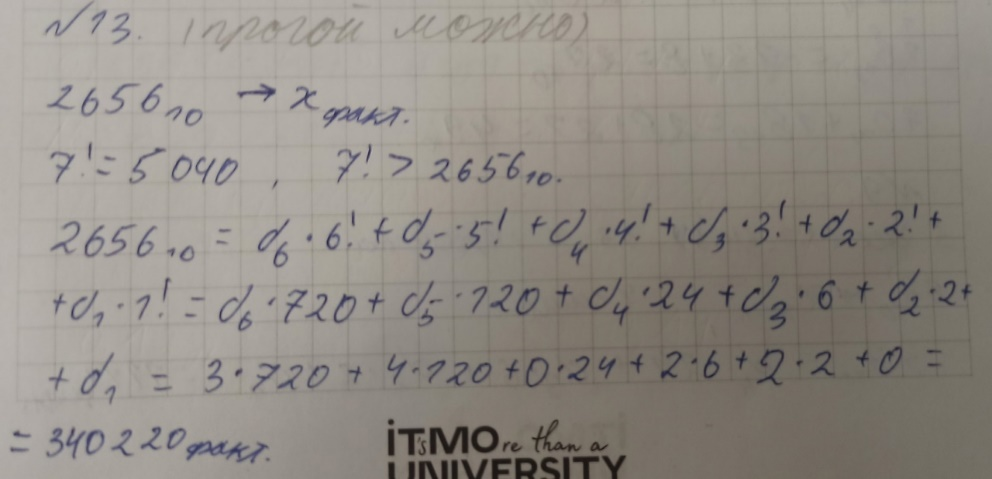 №13. (прогой можно)
2656₁₀ → x факт.
7! = 5 040 , 7! > 2656₁₀.
2656₁₀ = d₆·6! + d₅·5! + d₄·4! + d₃·3! + d₂·2! +
+d₁·1! = d₆·720 + d₅·120 + d₄·24 + d₃·6 + d₂·2+
+ d₁ = 3·720 + 4·120 + 0·24 + 2·6 + 2·2 + 0 =
= 340220 факт.
iT'sMOre than a
UNIVERSITY